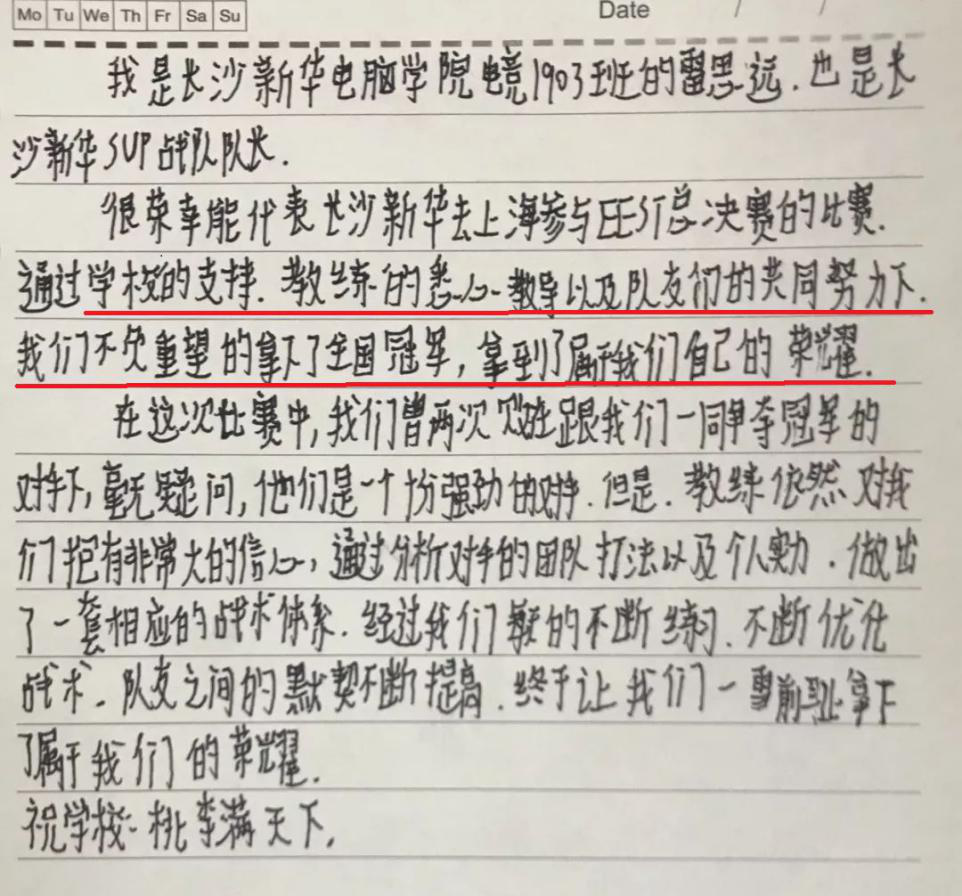 Mo Tu We Th Fr Sa Su
Date / /
我是长沙新华电脑学院电竞1903班的雷思远.也是长
沙新华SUP战队队长.
很荣幸能代表长沙新华去上海参与总决赛的比赛.
通过学校的支持.教练的悉心教导以及队友们的共同努力下.
我们不负重望的拿下了全国冠军,拿到了属于我们自己的荣耀.
在这次比赛中,我们曾两次败在跟我们一同争夺冠军的
对手下,毫无疑问,他们是一个十分强劲的对手.但是.教练依然对我
们抱有非常大的信心,通过分析对手的团队打法以及个人实力.做出
了一套相应的战术体系.经过我们的不断练习.不断优化
战术.队友之间的默契不断提高.终于让我们一雪前耻拿下
了属于我们的荣耀.
祝学校:桃李满天下.